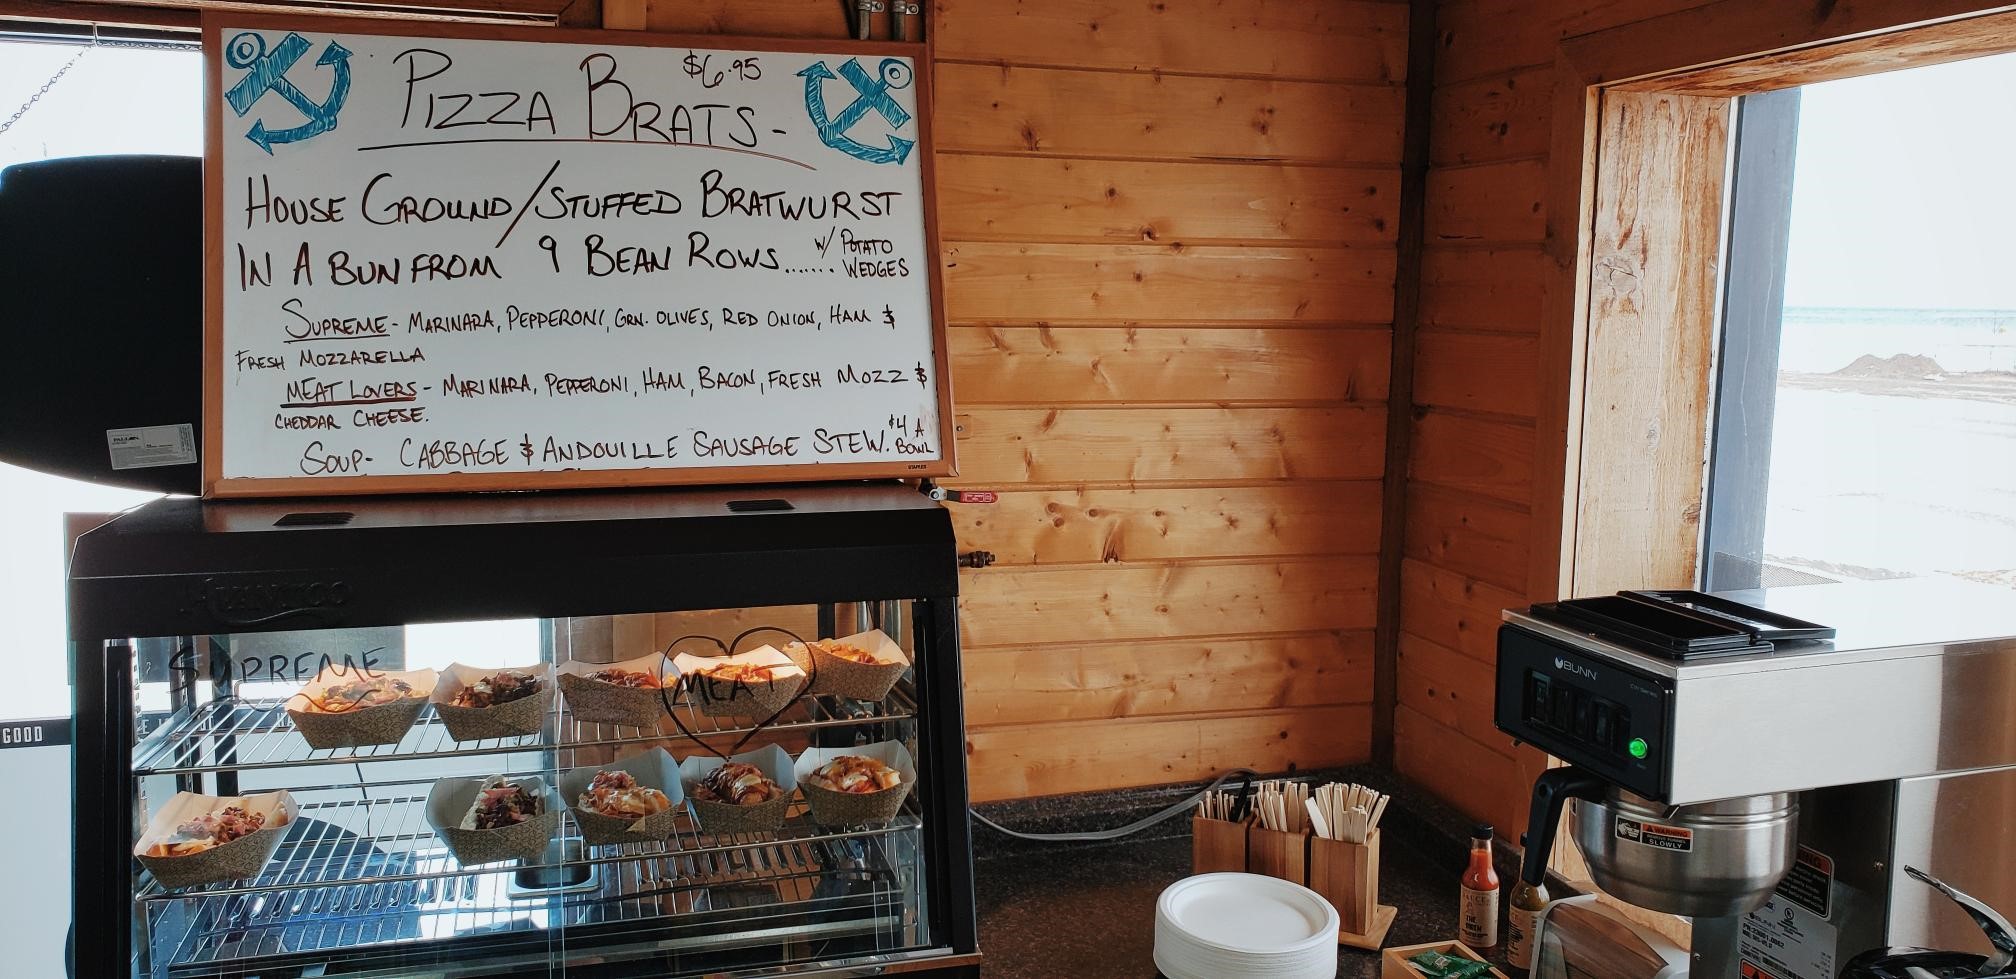 $6.95
PIZZA BRATS-
HOUSE GROUND/STUFFED BRATWURST
IN A BUN FROM 9 BEAN ROWS....... W/ POTATO WEDGES
SUPREME- MARINARA, PEPPERONI, GRN. OLIVES, RED ONION, HAM &
FRESH MOZZARELLA
MEAT LOVERS- MARINARA, PEPPERONI, HAM, BACON, FRESH MOZZ &
CHEDDAR CHEESE.
SOUP- CABBAGE & ANDOUILLE SAUSAGE STEW. $4 A BOWL
STAPLES
AVANTCO
SUPREME
MEAT
GOOD
BUNN
WARNING
SLOWLY